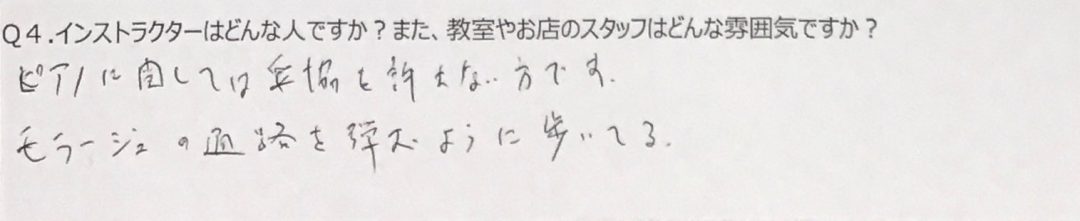 Q4.インストラクターはどんな人ですか？また、教室やお店のスタッフはどんな雰囲気ですか？
ピアノに関しては妥協を許さない方です.
モラージュの通路を弾むように歩いてる.